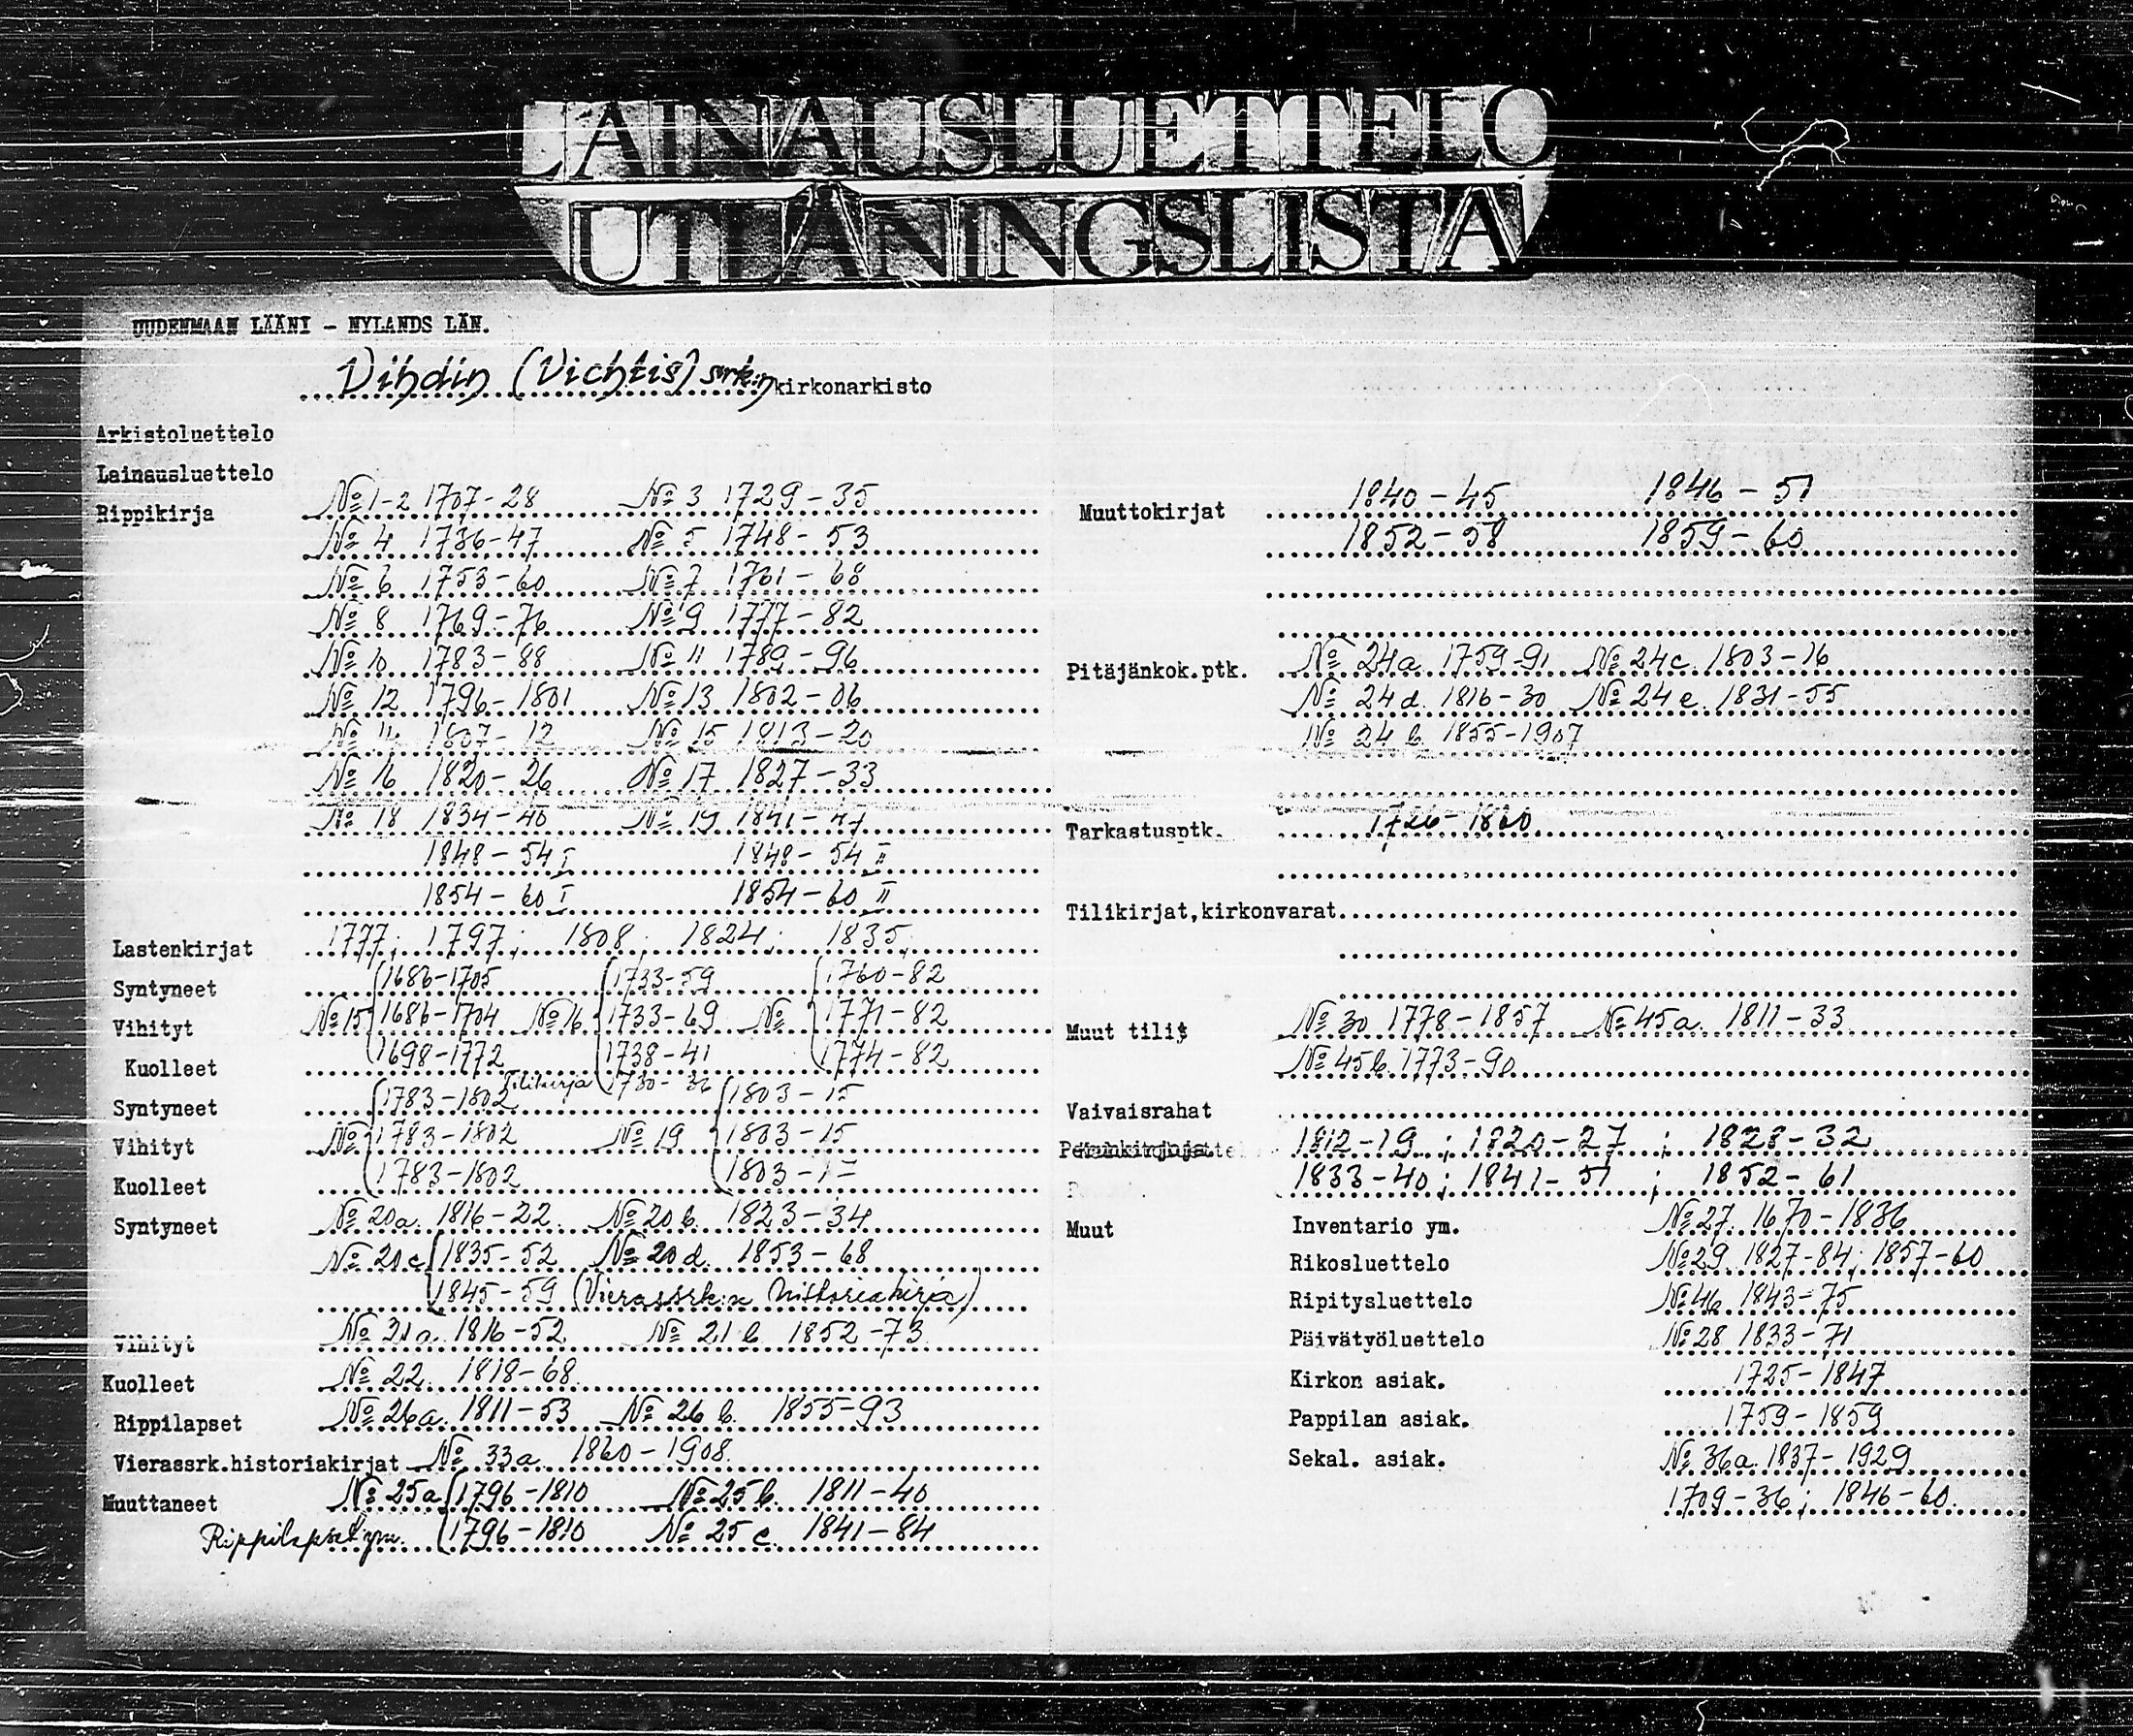 LAINAUSLUETTELO
UTLÅNINGSLISTA
UUDENMAAN LÄÄNI - NYLANDS LÄN.
Vihdin (Vichtis) srk:n kirkonarkisto
Arkistoluettelo
Lainausluettelo
Rippikirja № 1-2 1707-28 № 3 1729-35
№ 4 1736-47 № 5 1748-53
№ 6 1753-60 № 7 1761-68
№ 8 1769-76 № 9 1777-82
№ 10 1783-88 № 11 1789-96
№ 12 1796-1801 № 13 1802-06
№ 14 1807-12 № 15 1813-20
№ 16 1820-26 № 17 1827-33
№ 18 1834-40 № 19 1841-47
1848-54 I 1848-54 II
1854-60 I 1854-60 II
Lastenkirjat 1777; 1797; 1808; 1824; 1835
Syntyneet 1686-1705 1733-59 1760-82
Vihityt № 15 1686-1704 № 16 1733-69 № 1771-82
Kuolleet 1698-1772 1738-41 1774-82
Tilikirja 1730-36
Syntyneet 1783-1802 1803-15
Vihityt № 1783-1802 № 19 1803-15
Kuolleet 1783-1802 1803-15
Syntyneet № 20a. 1816-22. № 20b. 1823-34
№ 20c 1835-52 № 20d. 1853-68
1845-59 (Vierassrk:n historiakirja)
Vihityt № 21a. 1816-52 № 21b 1852-73
Kuolleet № 22. 1818-68.
Rippilapset № 26a. 1811-53 № 26b. 1855-93
Vierassrk.historiakirjat № 33a 1860-1908.
Muuttaneet № 25a 1796-1810 № 25b. 1811-40
Rippilapset ym. 1796-1810 № 25c. 1841-84
Muuttokirjat 1840-45 1846-51
1852-58 1859-60
Pitäjänkok.ptk. № 24a. 1759-91 № 24c. 1803-16
№ 24d. 1816-30 № 24e. 1831-55
№ 24b. 1855-1907
Tarkastusptk.
Tilikirjat,kirkonvarat
Muut tilit № 30 1778-1857 № 45a. 1811-33
№ 45b. 1773-90
Vaivaisrahat
1812-19; 1820-27; 1828-32
1833-40; 1841-51; 1852-61
Muut Inventario ym. № 27. 1670-1836
Rikosluettelo № 29 1827-84; 1857-60
Ripitysluettelo № 46 1843-75
Päivätyöluettelo № 28 1833-71
Kirkon asiak. 1725-1847
Pappilan asiak. 1759-1859
Sekal. asiak. № 36a. 1837-1929
1709-36; 1846-60.